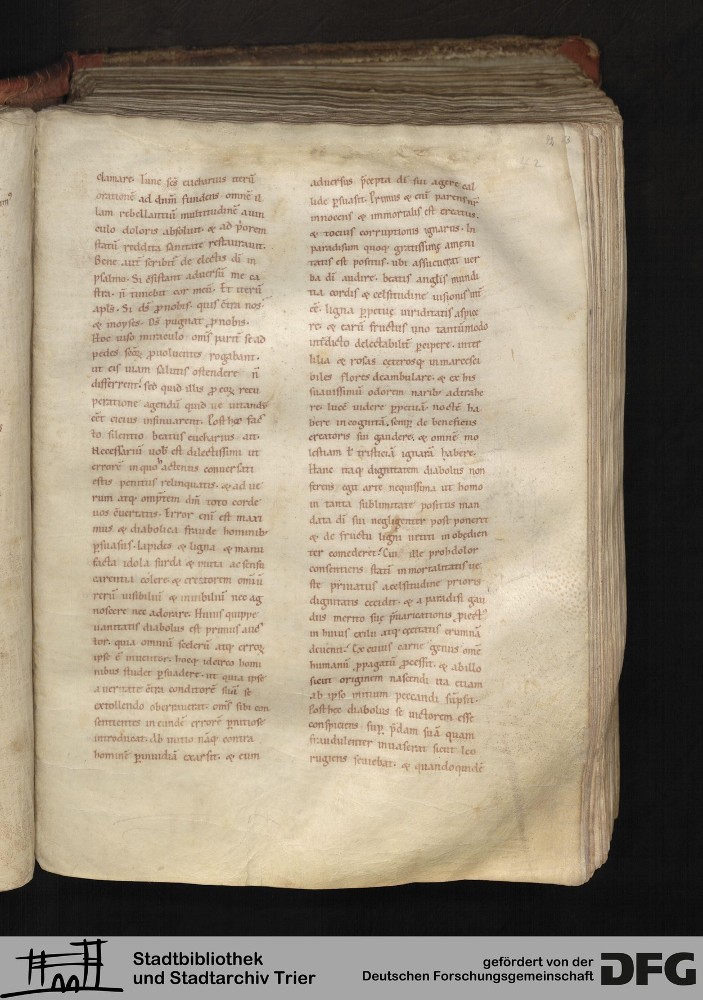 clamare. Tunc scs eucharius iterū
orationē ad dn̄m fundens omnē il
lam rebellantiū multitudinē a uin
culo doloris absoluit. & ad p̄orem
statū reddita sanitate restaurauit.
Bene aut̄ scribit̄ de electis dī in
psalmo. Si ꝯsistant aduersū me ca
stra. n̄ timebit cor meū. Et iterū
apl̄s. Si ds̄ ꝓ nobis. quis cт̄ra nos.
& moyses. Ds̄ pugnat ꝓ nobis.
Hoc uiso miraculo om̄s parit̄ se ad
pedes scōꝝ ꝓuoluentes rogabant.
ut eis uiam salutis ostendere n̄
differrent. sed quid illis ꝓ eoꝝ recu
peratione agendū quid ue uitandū
eēt citius insinuarent. Post hęc fac̄
to silentio beatus eucharius ait.
Necessariū uob̄ est dilectissimi ut
errorē in quo hactenus conuersati
estis penitus relinquatis. & ad ue
rum atq; omp̄tem dm̄ toto corde
uos c̄uertatis. Error eni est maxi
mus & diabolica fraude hominib;
ꝑsuasus. lapides & ligna & manu
facta idola surda & muta ac sensu
carentia colere. & creatorem omiū
rerū uisibiliū & inuisibiliū nec ag
noscere nec adorare. Huius quippe
uanitatis diabolus est primus auc̄
tor. quia omniū scelerū atq; erroꝝ
ipse ē inuentor. hocq; idcirco homi
nibus studet ꝑsuadere. ut quia ipse
a ueritate c̄tra conditorē suū se
extollendo oberrauerat. om̄s sibi con
sentientes in eandē errorē ꝑnitiose
introducat. Ab initio nāq; contra
hominē ꝑ inuidiā exarsit. & cum
aduersus p̄cepta dī sui agere cal
lide ꝑsuasit. Primus & eni parens nr̄
innocens & immortalis est creatus.
& totius corruptionis ignarus. In
paradisum quoq; gratissimę ameni
tatis est positus. ubi assueuerat uer
ba dī audire. beatis angl̄is mundi
tia cordis & celsitudine uisionis int̄
eē. ligna ꝑpetuę uiriditatis aspice
re. & earū fructus uno tantūmodo
interdicto delectabilit̄ ꝑcipere. inter
lilia & rosas ceterosq; inmarcesci
biles flores deambulare. & ex his
suauissimū odorem narib; adtrahe
re. lucē uidere ꝑpetuā. noctē ha
bere incognitā. semp̄ de beneficiis
creatoris sui gaudere. & omnē mo
lestiam ł tristiciā ignaram habere.
Hanc itaq; dignitatem diabolus non
ferens. egit arte nequissima ut homo
in tanta sublimitate positus man
data dī sui negligenter postponeret
& de fructu ligni uetiti inobedien
ter comederet. Cui ille proh dolor
consentiens. statī inmortalitatis ue
ste priuatus a celsitudine prioris
dignitatis cecidit. & a paradisi gau
diis merito suę p̄uaricationis ꝓiect̄
in huius exilii atq; cecitatis erumnā
deuenit. Ex cuius carne genus om̄e
humanū ꝓpagatū ꝓcessit. & ab illo
sicut originem nascendi ita etiam
ab ipso initium peccandi sūpsit.
Post hęc diabolus se uictorem esse
conspiciens. sup̄ p̄dam suā quam
fraudulenter inuaserat sicut leo
rugiens seuiebat. & quandoquidē
42
Stadtbibliothek
und Stadtarchiv Trier
gefördert von der
Deutschen Forschungsgemeinschaft
DFG